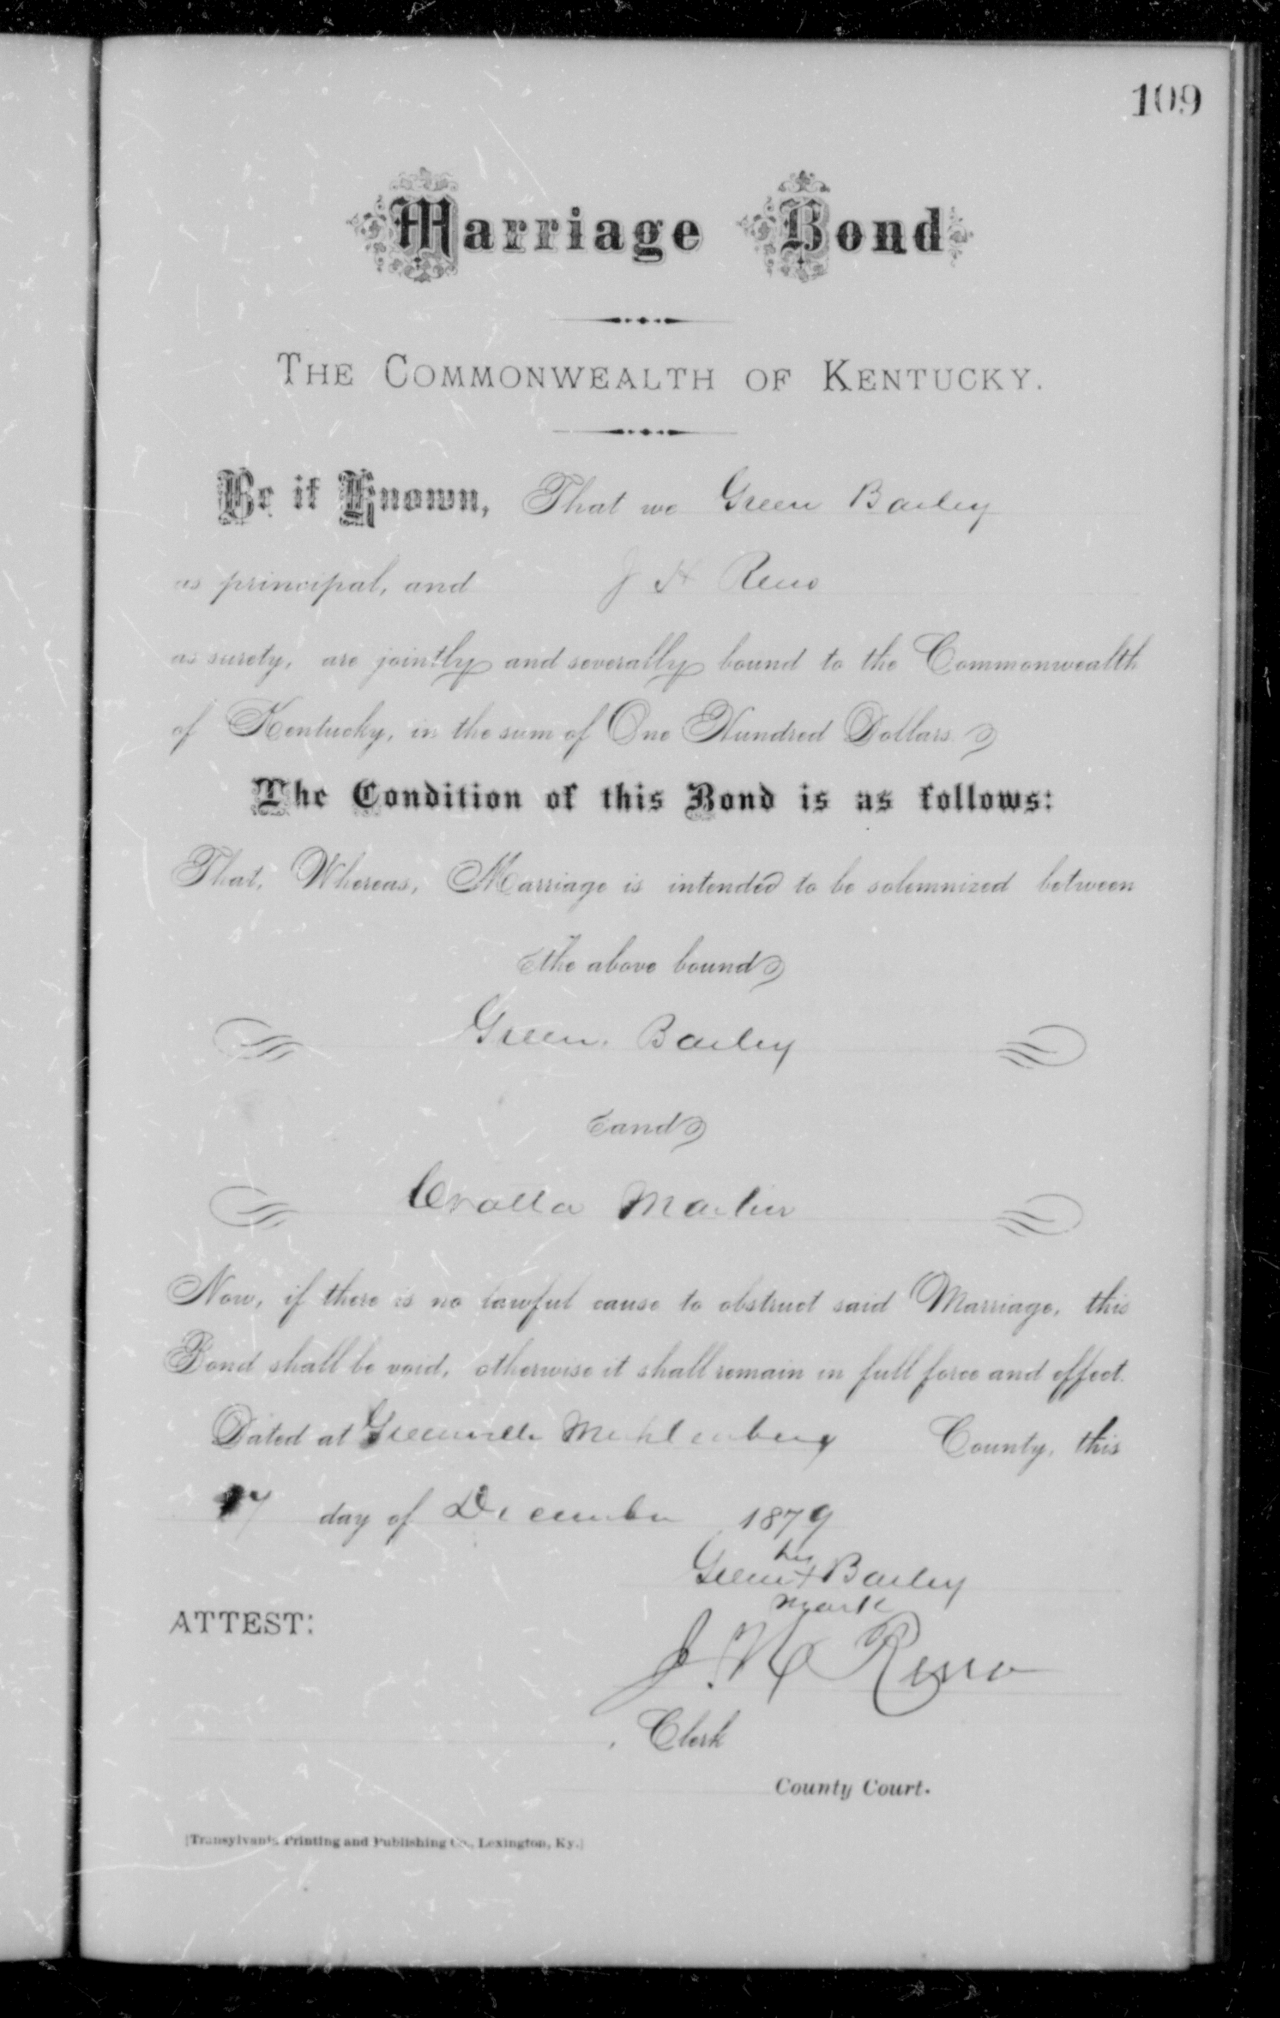 109
Marriage Bond
THE COMMONWEALTH OF KENTUCKY.
Be it Known, That we Green Bailey
as principal, and J H Reno
as surety, are jointly and severally bound to the Commonwealth
of Kentucky, in the sum of One Hundred Dollars
The Condition of this Bond is as follows:
That, Whereas, Marriage is intended to be solemnized between
the above bound
Green Bailey
and
Martin
Now, if there is no lawful cause to obstruct said Marriage, this
Bond shall be void, otherwise it shall remain in full force and effect.
Dated at Greenville Muhlenberg County, this
17 day of December 1879
his
Green X Bailey
mark
ATTEST:
J. H Reno
, Clerk
County Court.
[Transylvania Printing and Publishing Co., Lexington, Ky.]